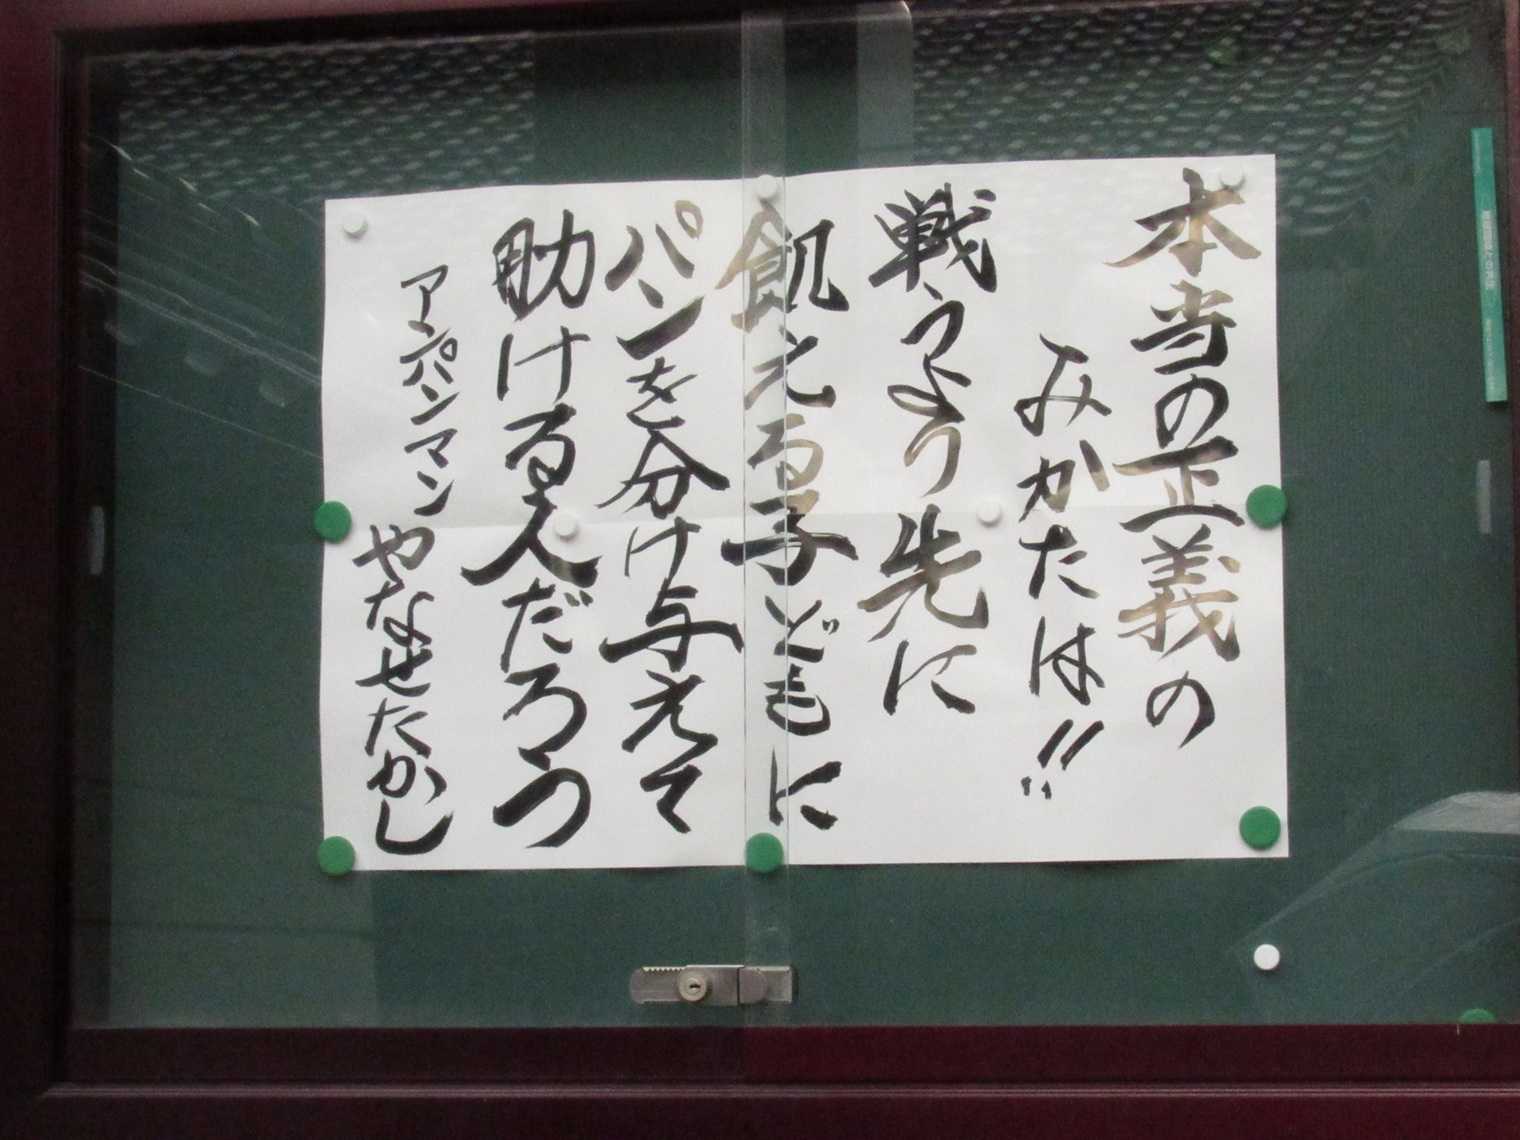 本当の正義の
みかたは!!
戦うより先に
飢える子どもに
パンを分け与えて
助ける人だろう
アンパンマン やなせたかし